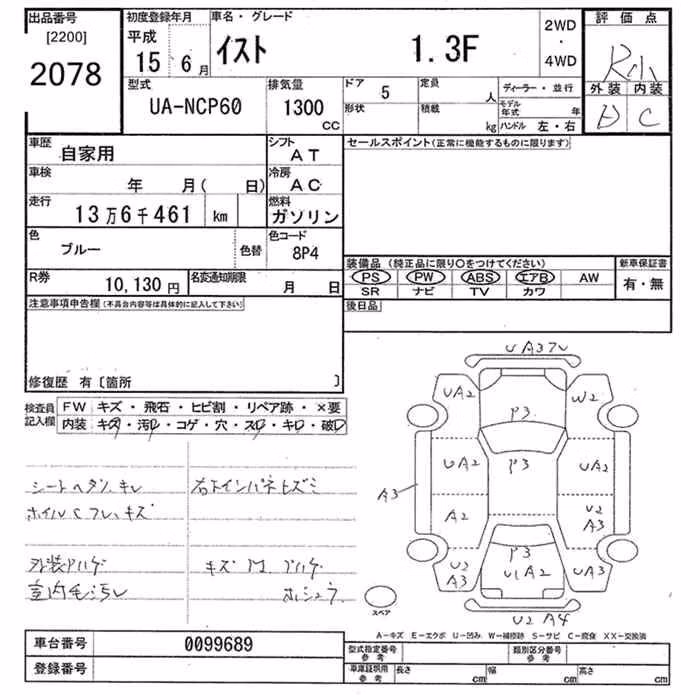 出品番号 初度登録年月 車名・グレード 2WD・4WD 評価点
[2200] 2078 平成 15 6月 イスト 1.3F R小
型式 UA-NCP60 排気量 1300 CC ドア 5 定員 人 ディーラー・並行 外装 内装
形状 積載 kg モデル年式 年 ハンドル 左・右 C
車歴 自家用 シフト AT セールスポイント(正常に機能するものに限ります)
車検 年 月( 日) 冷房 AC
走行 13万6千461 km 燃料 ガソリン
色 ブルー 色替 色コード 8P4
装備品 (純正品に限り○をつけてください) 新車保証書
PS PW ABS エアB AW 有・無
SR ナビ TV カワ
R券 10,130円 名変通知期限 月 日
後日品
注意事項申告欄(不具合内容等は具体的に記入して下さい)
修復歴 有〔箇所 〕
検査員記入欄 FW キズ・飛石・ヒビ割・リペア跡・×要
内装 キズ・汚レ・コゲ・穴・スレ・キレ・破レ
UA3 ワレ
UA2 P3 W2
UA2 P3 UA2
A3 A2 U2 A3
U2 A3 P3 UA2 UA3
U2 A4
シートヘタリ、キレ 右下インパネヒズミ
ホイルCフレ、キズ
外装アハゲ キズ M アハゲ
室内毛汚レ ホシュウ
スペア
A-キズ E-エクボ U-凹み W-補修跡 S-サビ C-腐食 XX-交換済
車台番号 0099689 型式指定番号 参考 類別区分番号 参考
登録番号 車庫証明用 参考 長さ cm 幅 cm 高さ cm